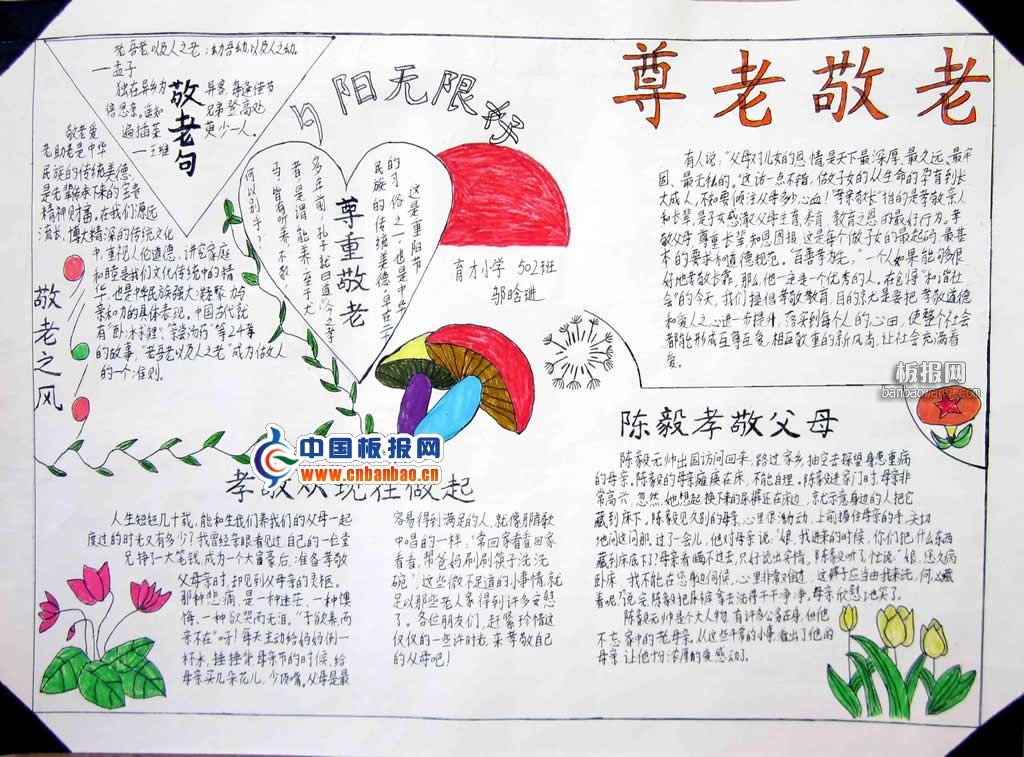 尊老敬老
夕阳无限好
敬老句
老吾老,以及人之老;幼吾幼,以及人之幼。
——孟子
独在异乡为异客,每逢佳节
倍思亲。遥知兄弟登高处
遍插茱萸少一人。
——王维
敬老之风
敬老爱
老助老是中华
民族的传统美德,
是先辈传承下来的宝贵
精神财富。在我们源远
流长,博大精深的传统文化
中,重视人伦道德、讲究家庭
和睦是我们文化传统中的精
华,也是中华民族强大凝聚力与
亲和力的具体表现。中国古代就
有“卧冰求鲤”、“亲尝汤药”等24孝
的故事,“老吾老以及人之老”成为做人
的一个准则。
尊重敬老
这是重阳节
的习俗之一,也是中华
民族的传统美德。早在二千
多年前,孔子就曰道:“今之孝
者,是谓能养。至于犬
马,皆有所养;不敬,
何以别乎?”
育才小学 502班
邬晗进
有人说:“父母对儿女的恩情是天下最深厚、最久远、最牢
固、最无私的。”这话一点不错。做子女的从生命的孕育到长
大成人,不知要倾注父母多少心血!“孝亲敬长”指的是孝敬亲人
和长辈,是子女感激父母生育、养育、教育之恩的最好行为。孝
敬父母,尊重长辈和恩图报这是每个做子女的最起码、最基
本的要求和道德规范。“百善孝为先。”一个人如果能够很
好地孝敬长辈,那么他一定是一个优秀的人。在创导“和谐社
会”的今天,我们提倡孝敬教育,目的就是要把孝敬道德
和爱人之心进一步提升,落实到每个人的心田,使整个社会
都能形成互尊互爱,相互敬重的新风尚,让社会充满着
爱。
板报网
banbaowang.com
中国板报网
www.cnbanbao.cn
孝敬从现在做起
人生短短几十载,能和生我们养我们的父母一起
度过的时光又有多少?我曾经亲眼看见过自己的一位堂
兄挣了一大笔钱,成为一个大富豪后,准备孝敬
父母亲时,却见到父母亲的灵柩。
那种悲痛,是一种迷茫,一种懊
悔,一种欲哭而无泪。“子欲养而
亲不在”呀!每天主动给妈妈倒一
杯水,捶捶背,母亲节的时候,给
母亲买几朵花儿,少顶嘴。父母是最
容易得到满足的人,就像那首歌
中唱的一样:“常回家看看回家
看看,帮爸妈刷刷筷子洗洗
碗”,这些微不足道的小事情,就
足以那些老人家得到许多安慰
了。各位朋友们,赶紧珍惜这
仅仅的一些许时光,来孝敬自己
的父母吧!
陈毅孝敬父母
陈毅元帅出国访问回来,路过家乡,抽空去探望身患重病
的母亲。陈毅的母亲瘫痪在床,不能自理。陈毅进家门时,母亲非
常高兴,忽然,她想起换下来的尿裤还在床边,就示意身边的人把它
藏到床下,陈毅见久别的母亲,心里很激动,上前握住母亲的手,关切
地问这问那,过了一会儿,他对母亲说:“娘,我进来的时候,你们把什么东西
藏到床底下了?母亲看瞒不过去,只好说出实情,陈毅听了,忙说:“娘,您久病
卧床,我不能在您身边伺候,心里非常难过,这裤子应当由我来洗,何必藏
着呢?”说完,陈毅把尿裤拿去洗得干干净净,母亲欣慰地笑了。
陈毅元帅是个大人物,有许多公务在身,但他
不忘家中的老母亲。从这些平常的小事,看出了他的
母亲,让他十分浓厚的爱感动了。